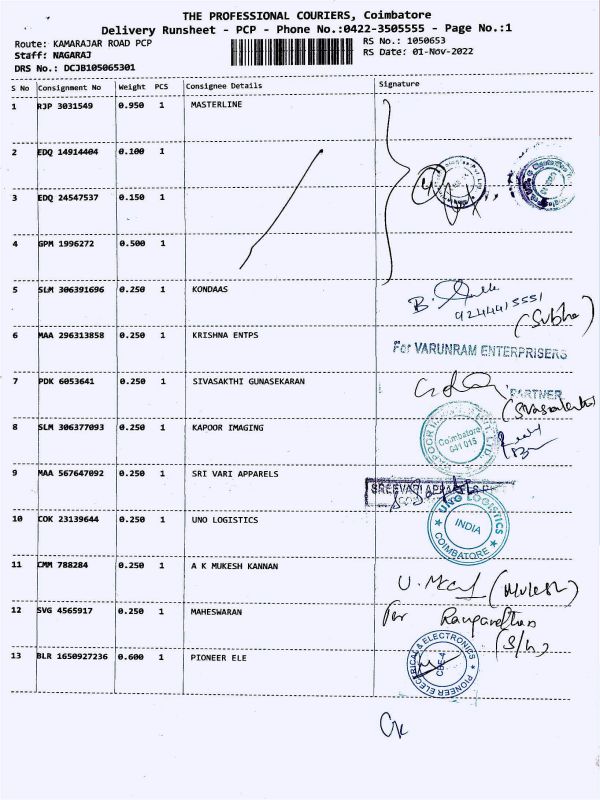 THE PROFESSIONAL COURIERS, Coimbatore
Delivery Runsheet - PCP - Phone No.:0422-3505555 - Page No.:1
Route: KAMARAJAR ROAD PCP RS No.: 1050653
Staff: NAGARAJ RS Date: 01-Nov-2022
DRS No.: DCJB105065301
S No Consignment No Weight PCS Consignee Details Signature
1 RJP 3031549 0.950 1 MASTERLINE
2 EDQ 14914404 0.100 1
3 EDQ 24547537 0.150 1
4 GPM 1996272 0.500 1
5 SLM 306391696 0.250 1 KONDAAS
9244415551
(Subha)
6 MAA 296313858 0.250 1 KRISHNA ENTPS
For VARUNRAM ENTERPRISERS
7 PDK 6053641 0.250 1 SIVASAKTHI GUNASEKARAN
PARTNER
8 SLM 306377093 0.250 1 KAPOOR IMAGING
Coimbatore
641 015
9 MAA 567647092 0.250 1 SRI VARI APPARELS
SREEVARI APPARELS
10 COK 23139644 0.250 1 UNO LOGISTICS
UNO LOGISTICS
INDIA
COIMBATORE
11 CMM 788284 0.250 1 A K MUKESH KANNAN
12 SVG 4565917 0.250 1 MAHESWARAN
For
(S/h)
13 BLR 1650927236 0.600 1 PIONEER ELE
PIONEER ELECTRICAL & ELECTRONICS
CBE-4